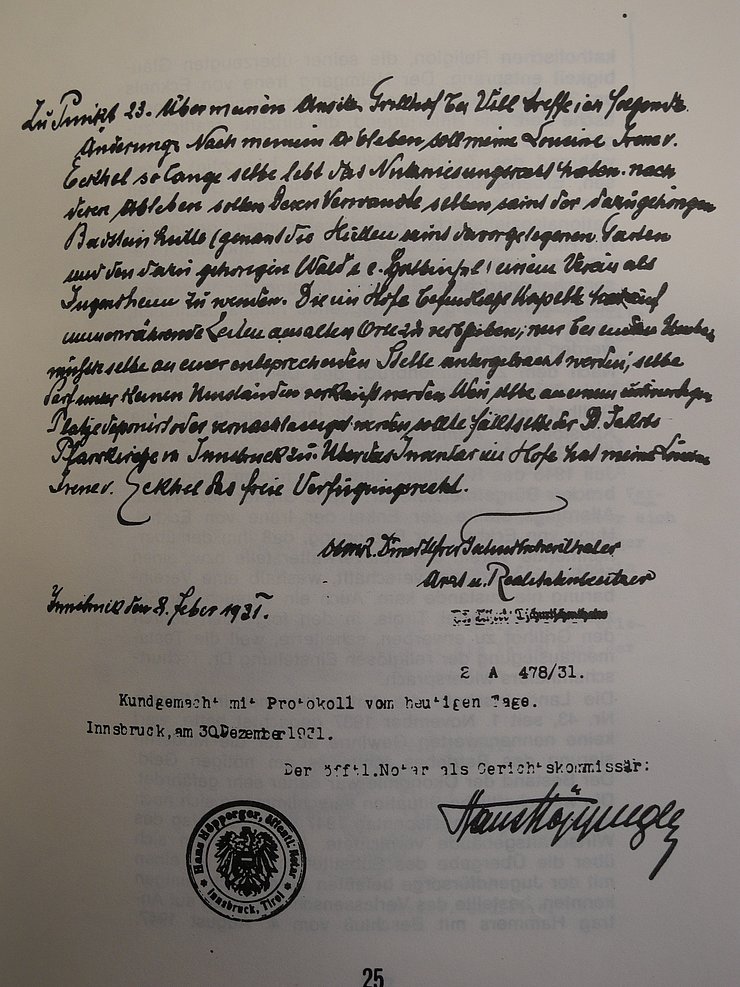 Zu Punkt 23. Über meinen Ansitz Grillhof bei Vill treffe ich folgende
Änderung. Nach meinem Ableben soll meine Cousine Irene v.
Eckhel so lange selbe lebt das Nutzniesungsrecht haben. nach
deren Ableben sollen deren Verwandte selben samt der dazugehörigen
(genant die Hütten samt davorgelegenen Garten
und den dazu gehörigen Wald einem Verein als
Jugendheim zu wenden. Die im Hofe befindliche Kapelle hat auf
immerwährende Zeiten am alten Orte zu verbleiben, nur bei
müsste selbe an einer entsprechenden Stelle untergebracht werden; selbe
darf unter keinen Umständen verkauft werden. Wen selbe an einem
Platze deponirt oder vernachlässiget werden sollte fällt selbe der St. Jakobs
Pfarrkirche in Innsbruck zu. Über das Inventar im Hofe hat meine Cousine
Irene v. Eckhel das freie Verfügungsrecht.
Arzt u. Realitätenbesitzer
Innsbruck den 8. Feber 1931.
2 A 478/31.
Kundgemacht mit Protokoll vom heutigen Tage.
Innsbruck, am 30.Dezember 1931.
Der öfftl.Notar als Gerichtskommissär:
Hans Höpperger
Hans Höpperger, öffentl. Notar
* Innsbruck, Tirol *
25